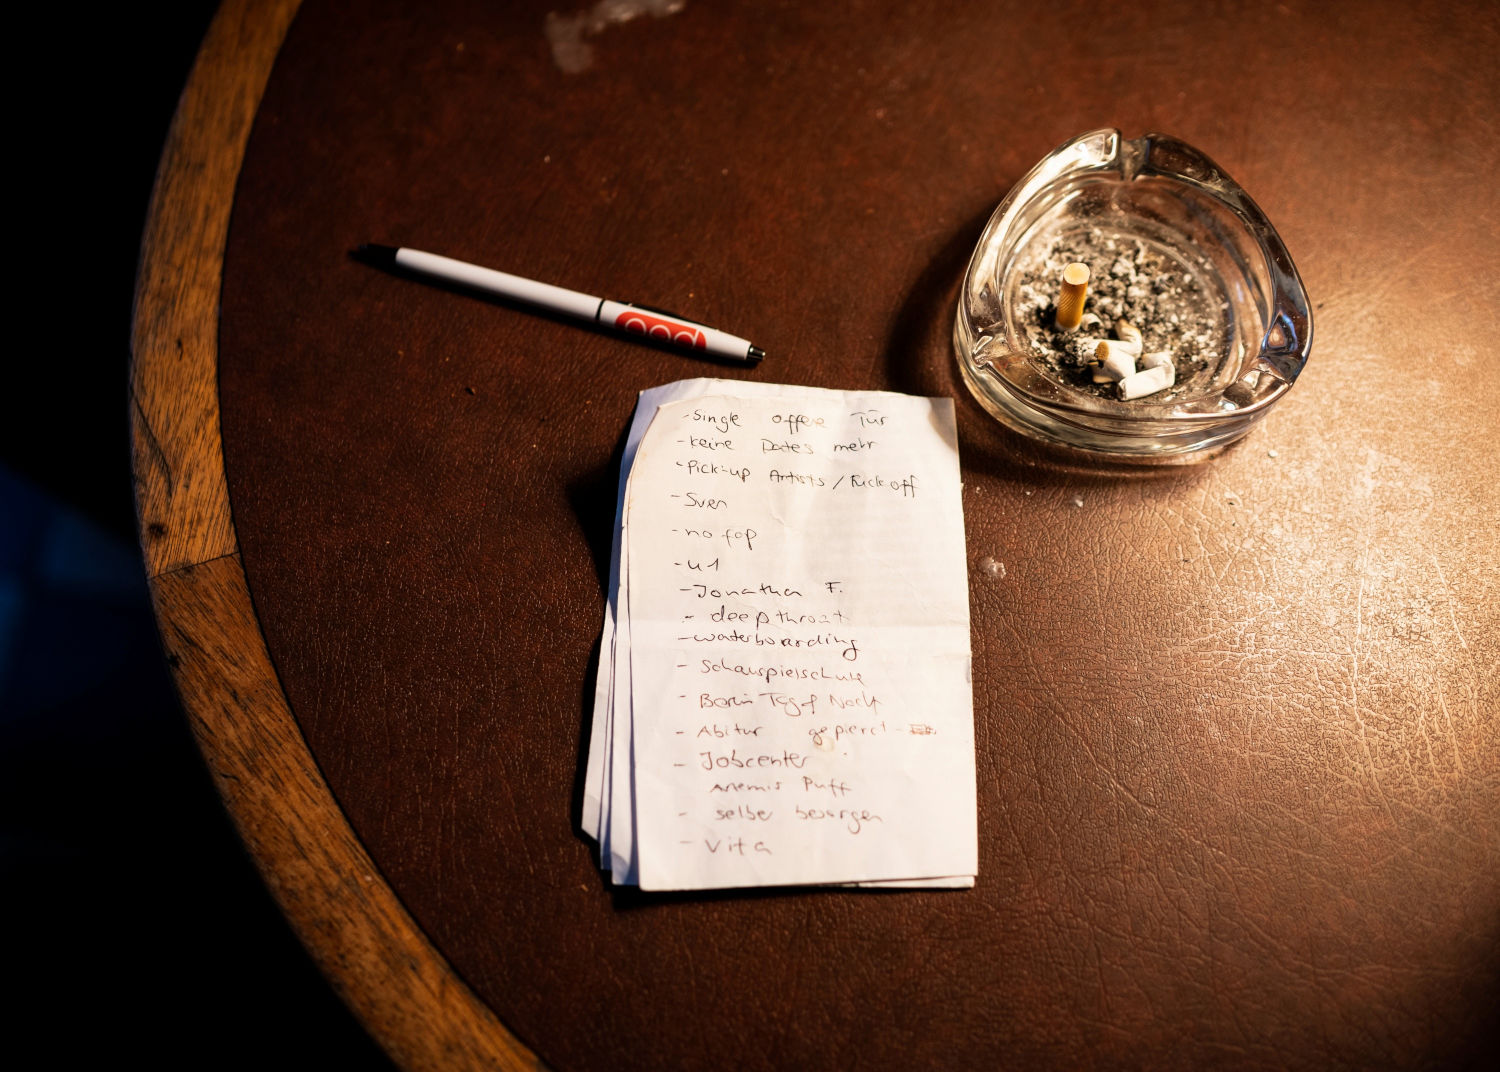 - Single offene Tür
- keine Dates mehr
- Pick-up Artists / Kick off
- Sven
- no fap
- u1
- Jonathan F.
- deepthroat
- waterboarding
- Schauspielschule
- Berlin Tag & Nacht
- Abitur gepierct -
- Jobcenter
Puff
- selber besorgen
- Vita